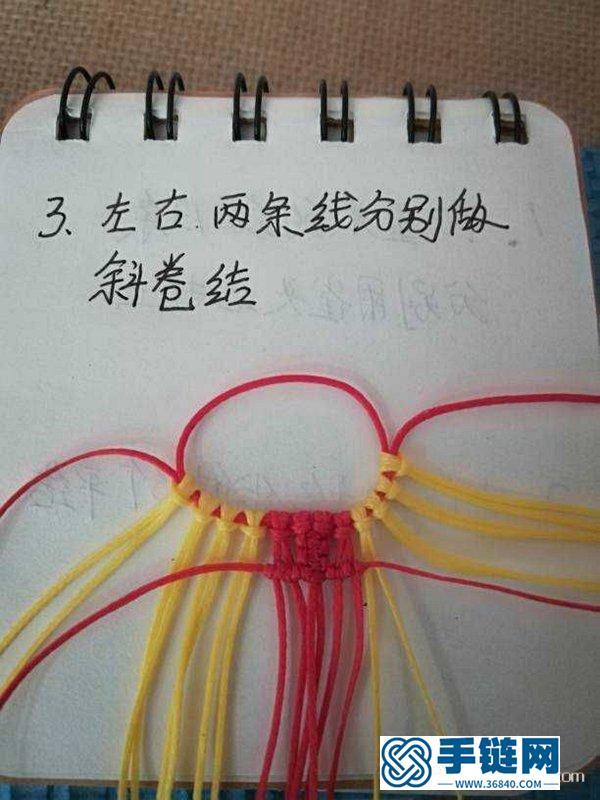 3、左右两条线分别做
斜卷结
手链网
www.36840.com